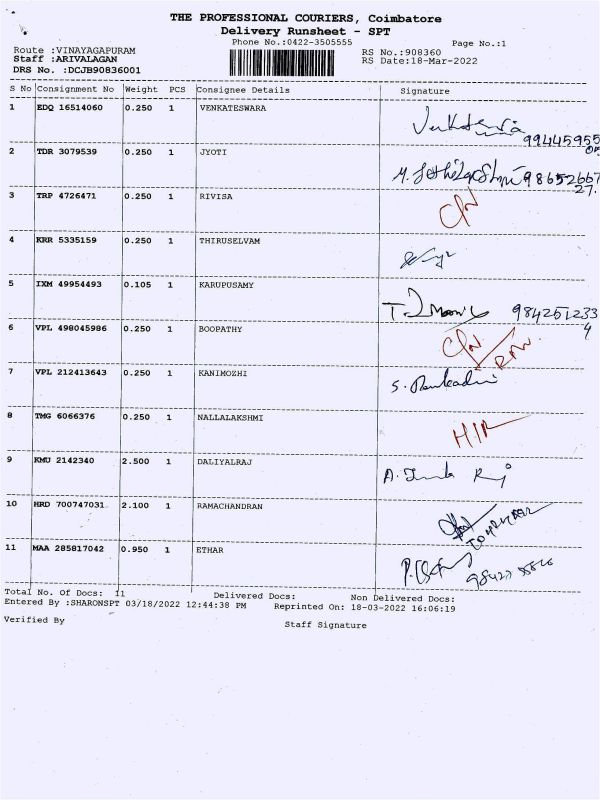 THE PROFESSIONAL COURIERS, Coimbatore
Delivery Runsheet - SPT
Phone No.:0422-3505555 Page No.:1
Route :VINAYAGAPURAM RS No.:908360
Staff :ARIVALAGAN RS Date:18-Mar-2022
DRS No. :DCJB90836001
S No Consignment No Weight PCS Consignee Details Signature
1 EDQ 16514060 0.250 1 VENKATESWARA
2 TDR 3079539 0.250 1 JYOTI
3 TRP 4726471 0.250 1 RIVISA
4 KRR 5335159 0.250 1 THIRUSELVAM
5 IXM 49954493 0.105 1 KARUPUSAMY
6 VPL 498045986 0.250 1 BOOPATHY
7 VPL 212413643 0.250 1 KANIMOZHI
8 TMG 6066376 0.250 1 NALLALAKSHMI
9 KMU 2142340 2.500 1 DALIYALRAJ
10 HRD 700747031 2.100 1 RAMACHANDRAN
11 MAA 285817042 0.950 1 ETHAR
Total No. Of Docs: 11 Delivered Docs: Non Delivered Docs:
Entered By :SHARONSPT 03/18/2022 12:44:38 PM Reprinted On: 18-03-2022 16:06:19
Verified By Staff Signature